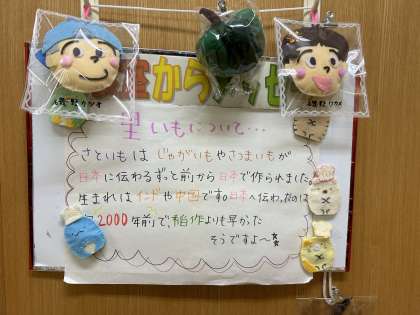 から
里いもについて…
さといもは じゃがいもやさつまいもが
日本に伝わるずっと前から日本で作られました。
生まれはインドや中国です。日本へ伝わったのは
2000年前で、稲作よりも早かった
そうですよ〜